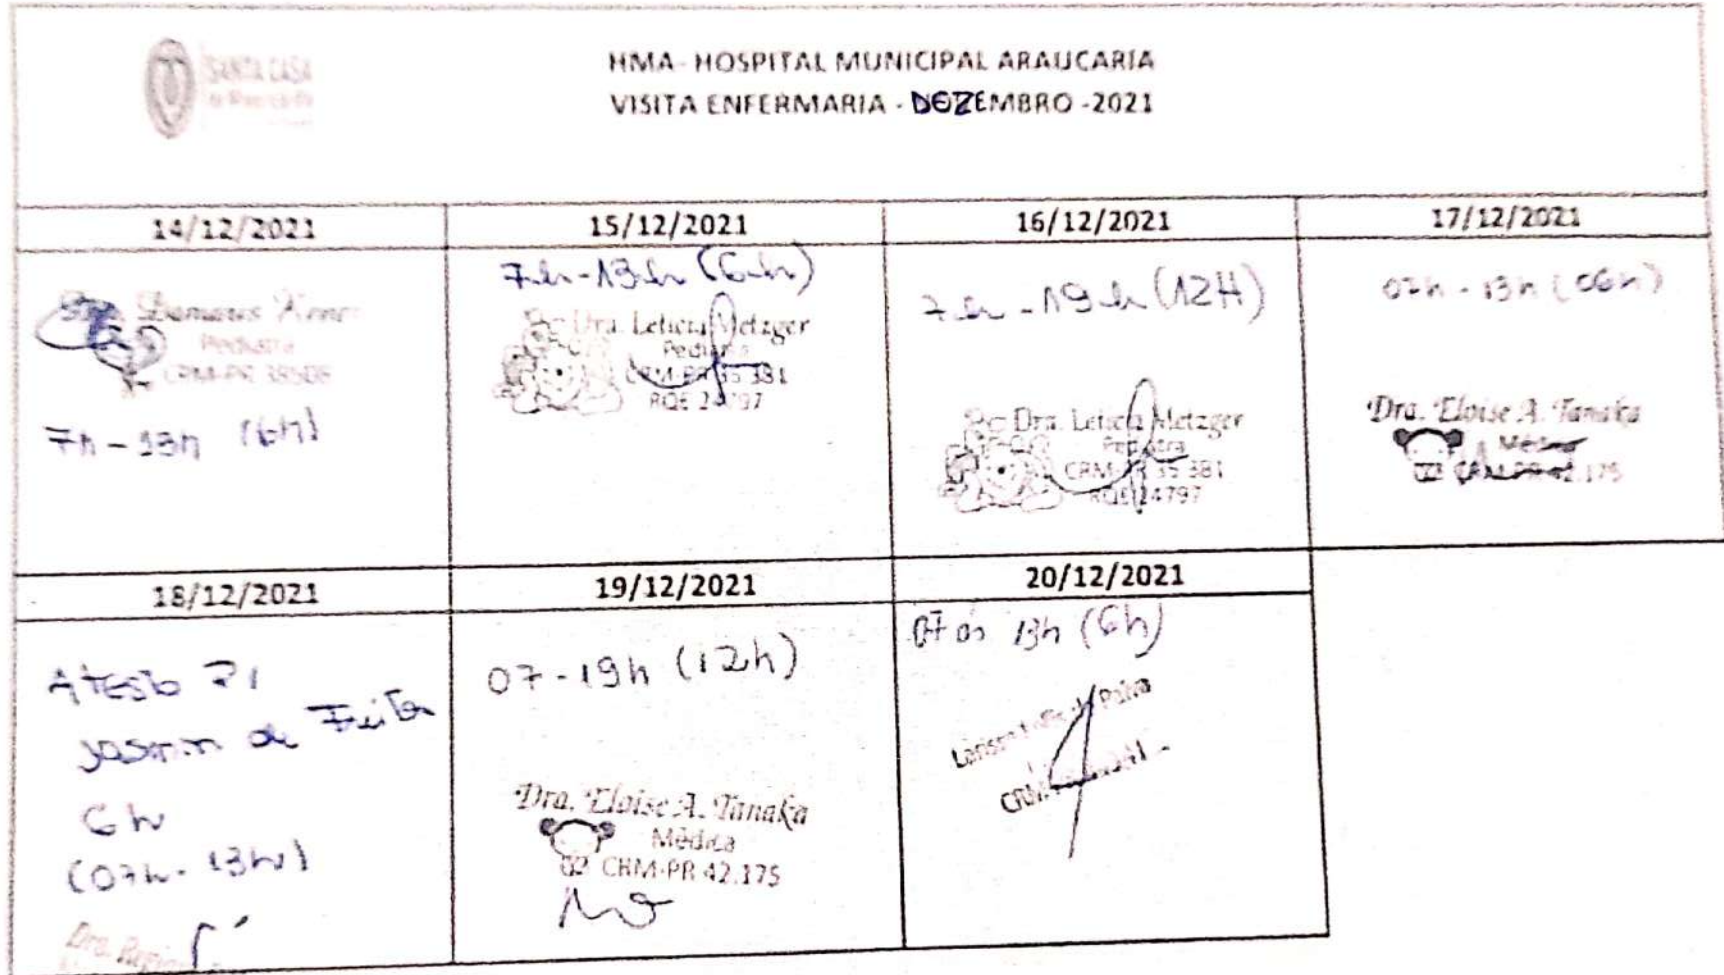 SANTA CASA
HMA- HOSPITAL MUNICIPAL ARAUCARIA
VISITA ENFERMARIA - DEZEMBRO -2021
14/12/2021
15/12/2021
16/12/2021
17/12/2021
Dra. Damaris
Pediatra
CRM-PR
7h-13h (6h)
7h-13h (6h)
Dra. Leticia Metzger
Pediatra
CRM-PR 35 381
RQE 24797
7h-19h (12H)
Dra. Leticia Metzger
Pediatra
CRM-PR 35 381
RQE 24797
07h-13h (06h)
Dra. Eloise A. Tanaka
Médica
CRM-PR 42.175
18/12/2021
19/12/2021
20/12/2021
Atesto P/
Jasmin de Freitas
6h
(07h-13h)
Dra.
07-19h (12h)
Dra. Eloise A. Tanaka
Médica
CRM-PR 42.175
07 as 13h (6h)
Paiva